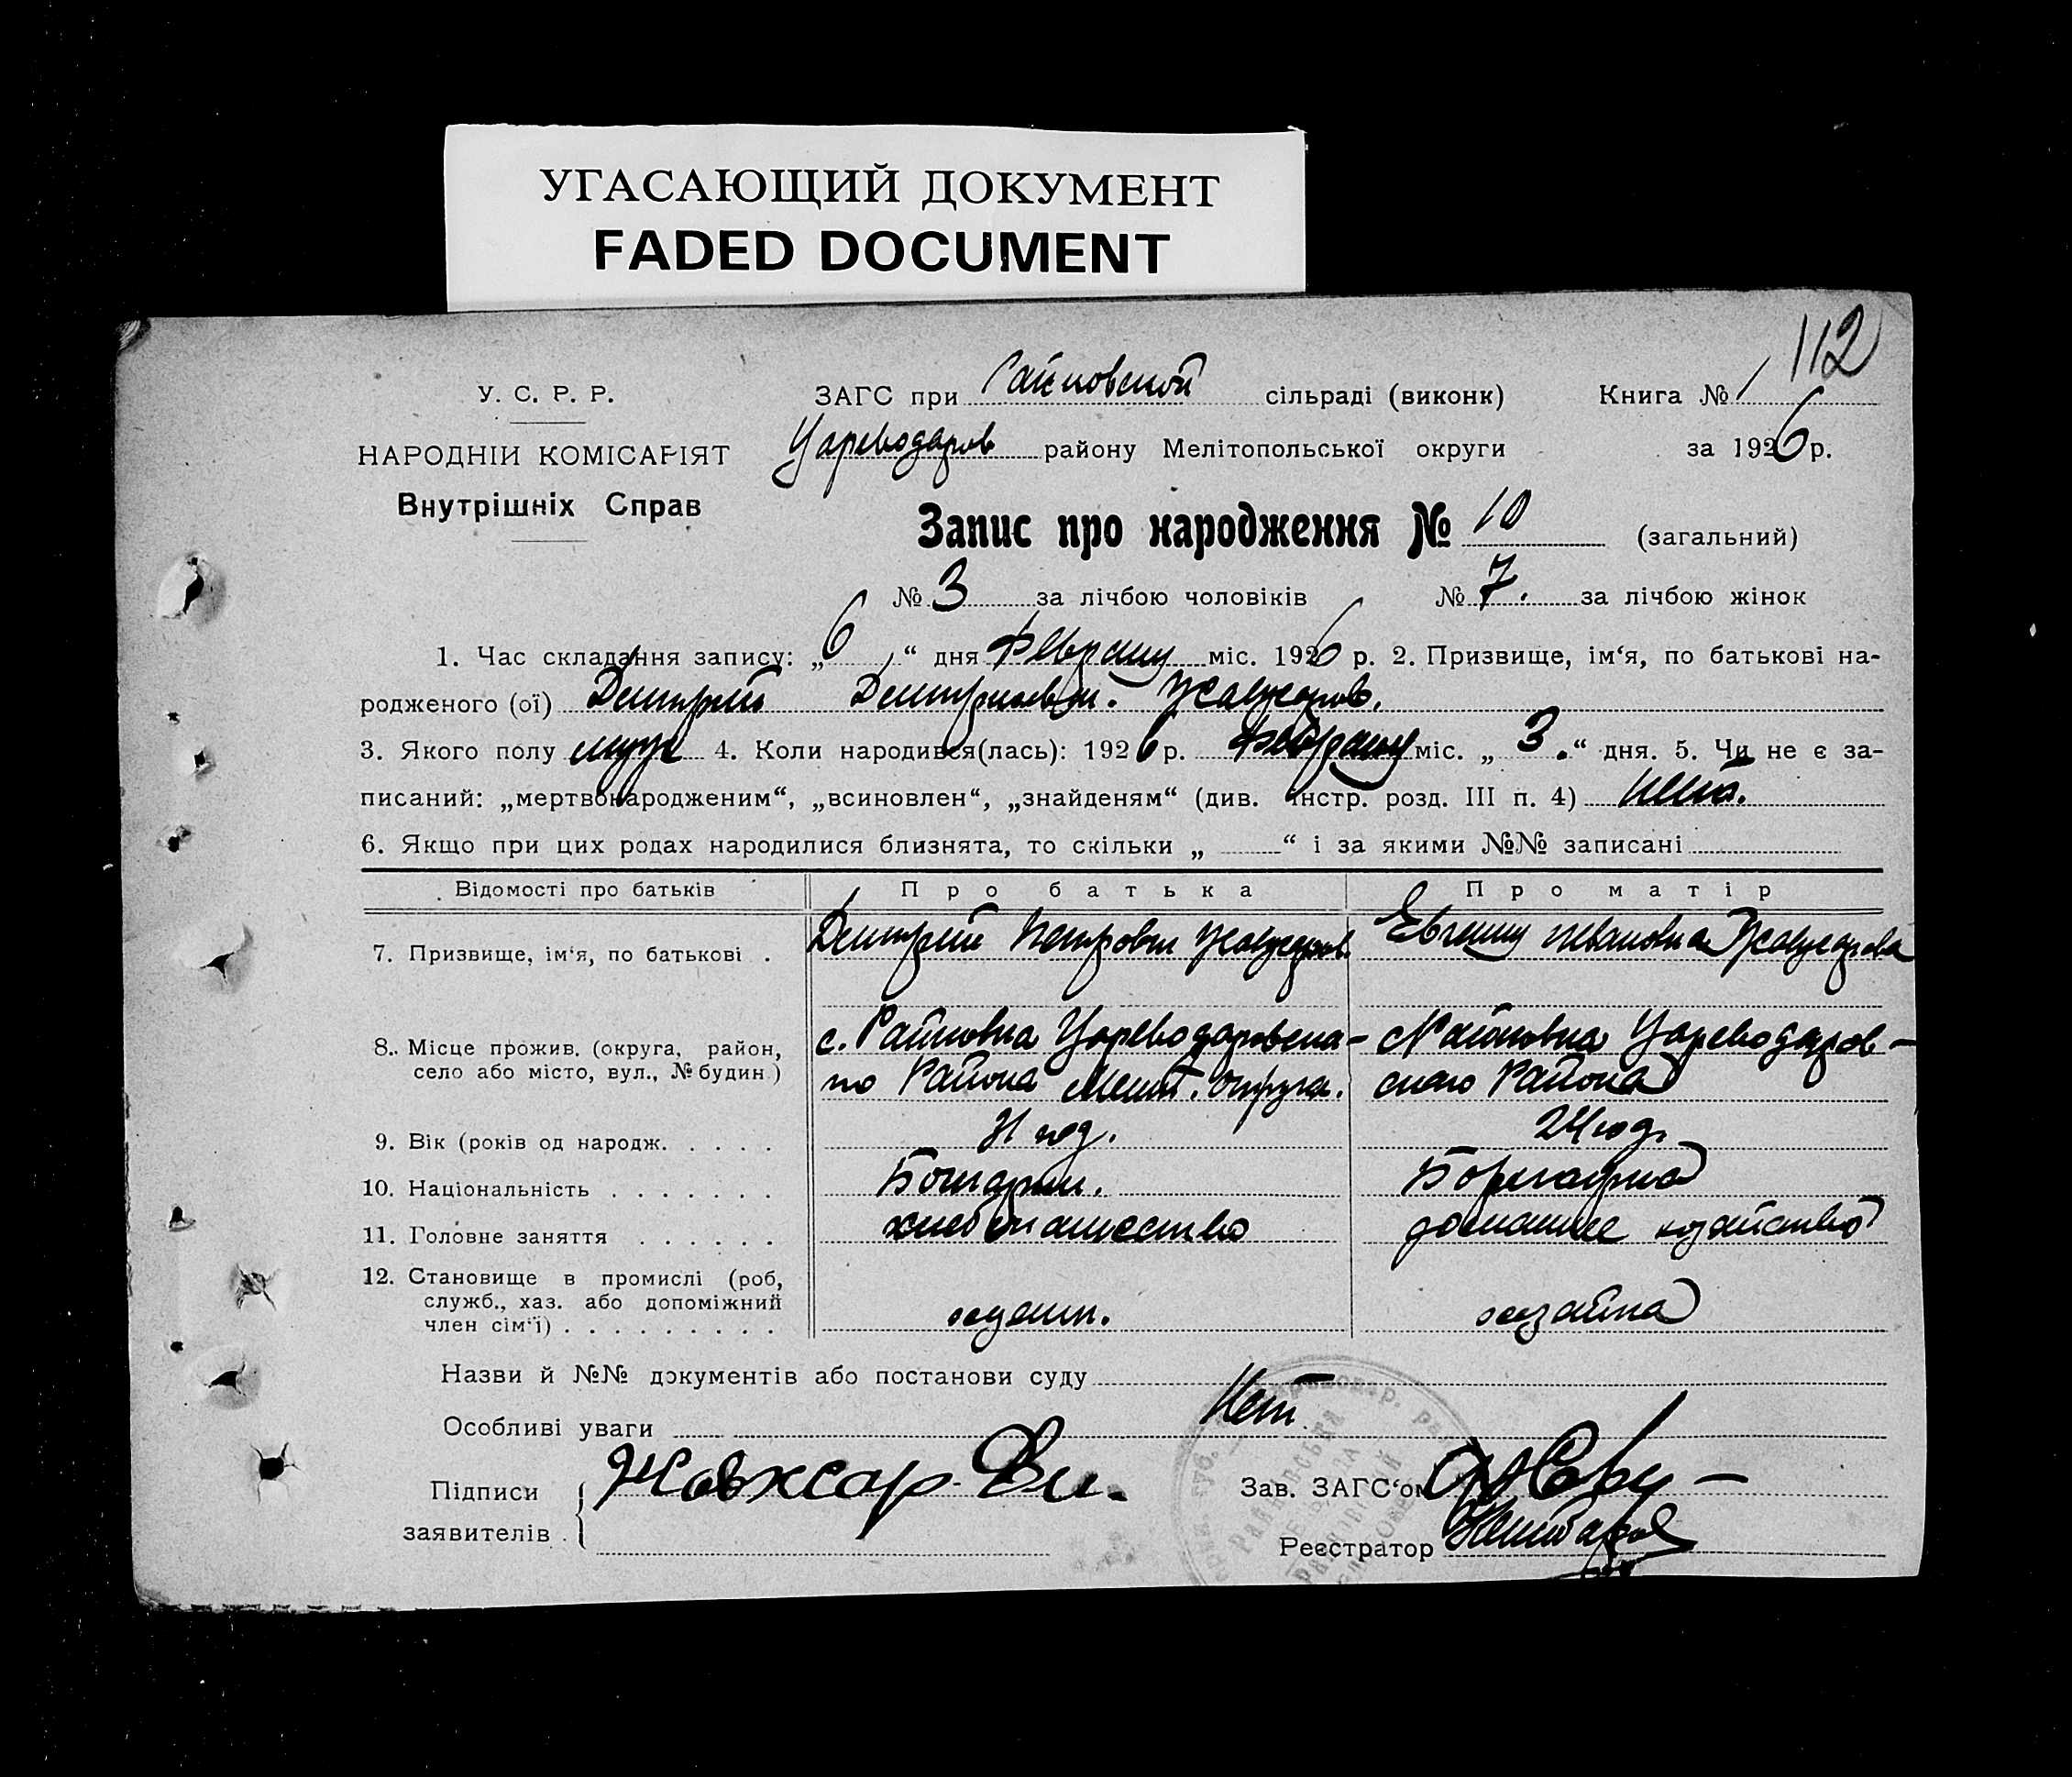 УГАСАЮЩИЙ ДОКУМЕНТ
FADED DOCUMENT
112
У. С. Р. Р. ЗАГС при Райновской сільраді (виконк) Книга № 1
НАРОДНІЙ КОМІСАРІЯТ Цареводаров району Мелітопольської округи за 1926 р.
Внутрішніх Справ
Запис про народження № 10 (загальний)
№ 3 за лічбою чоловіків № 7. за лічбою жінок
1. Час складання запису: „6“ дня февраля міс. 1926 р. 2. Призвище, ім‘я, по батькові на-
родженого (ої) Дмитрий Дмитриевич.
3. Якого полу муж 4. Коли народився(лась): 1926 р. февраля міс. „3.“ дня. 5. Чи не є за-
писаний: „мертвонародженим“, „всиновлен“, „знайденям“ (див. Інстр. розд. III п. 4)
6. Якщо при цих родах народилися близнята, то скільки „ “ і за якими №№ записані
Відомості про батьків Про батька Про матір
7. Призвище, ім‘я, по батькові . Дмитрий Петрович Евгения Ивановна
8. Місце прожив. (округа, район, с. Райновка Цареводаровска- с Райновка Цареводаров-
село або місто, вул., № будин.) го Района Мелит. округа. ского Района
9. Вік (років од народж. . . . . год. 24 год.
10. Національність . . . . . . . Болгарин. Болгарка
11. Головне заняття . . . . . . хлебопашество домашнее хозяйство
12. Становище в промислі (роб,
служб., хаз. або допоміжний
член сім‘ї) . . . . . . . . . хозяйка
Назви й №№ документів або постанови суду
Особливі уваги Нет
Підписи Жовжар Дм. Зав. ЗАГС‘ом
заявителів .
Реєстратор